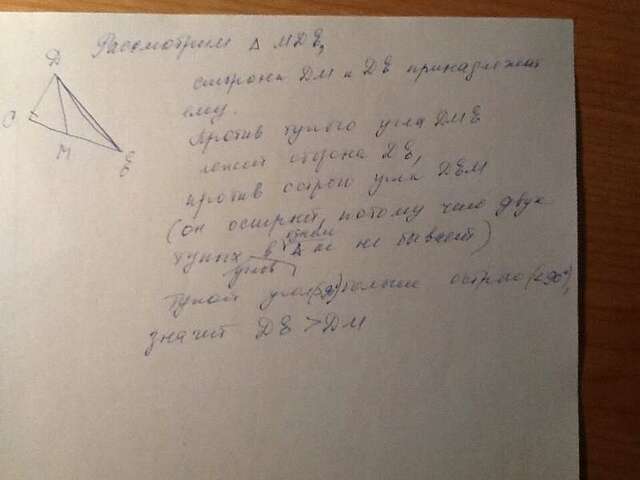 Рассмотрим △ МДЕ,
Д
стороны ДМ и ДЕ принадлежат
ему.
С
М
Е
Против тупого угла ДМЕ
лежит сторона ДЕ,
против острого угла ДЕМ
(он острый, потому что двух
тупых углов в одном △ке не бывает)
Тупой угол(>90°)больше острого(<90°),
значит ДЕ > ДМ